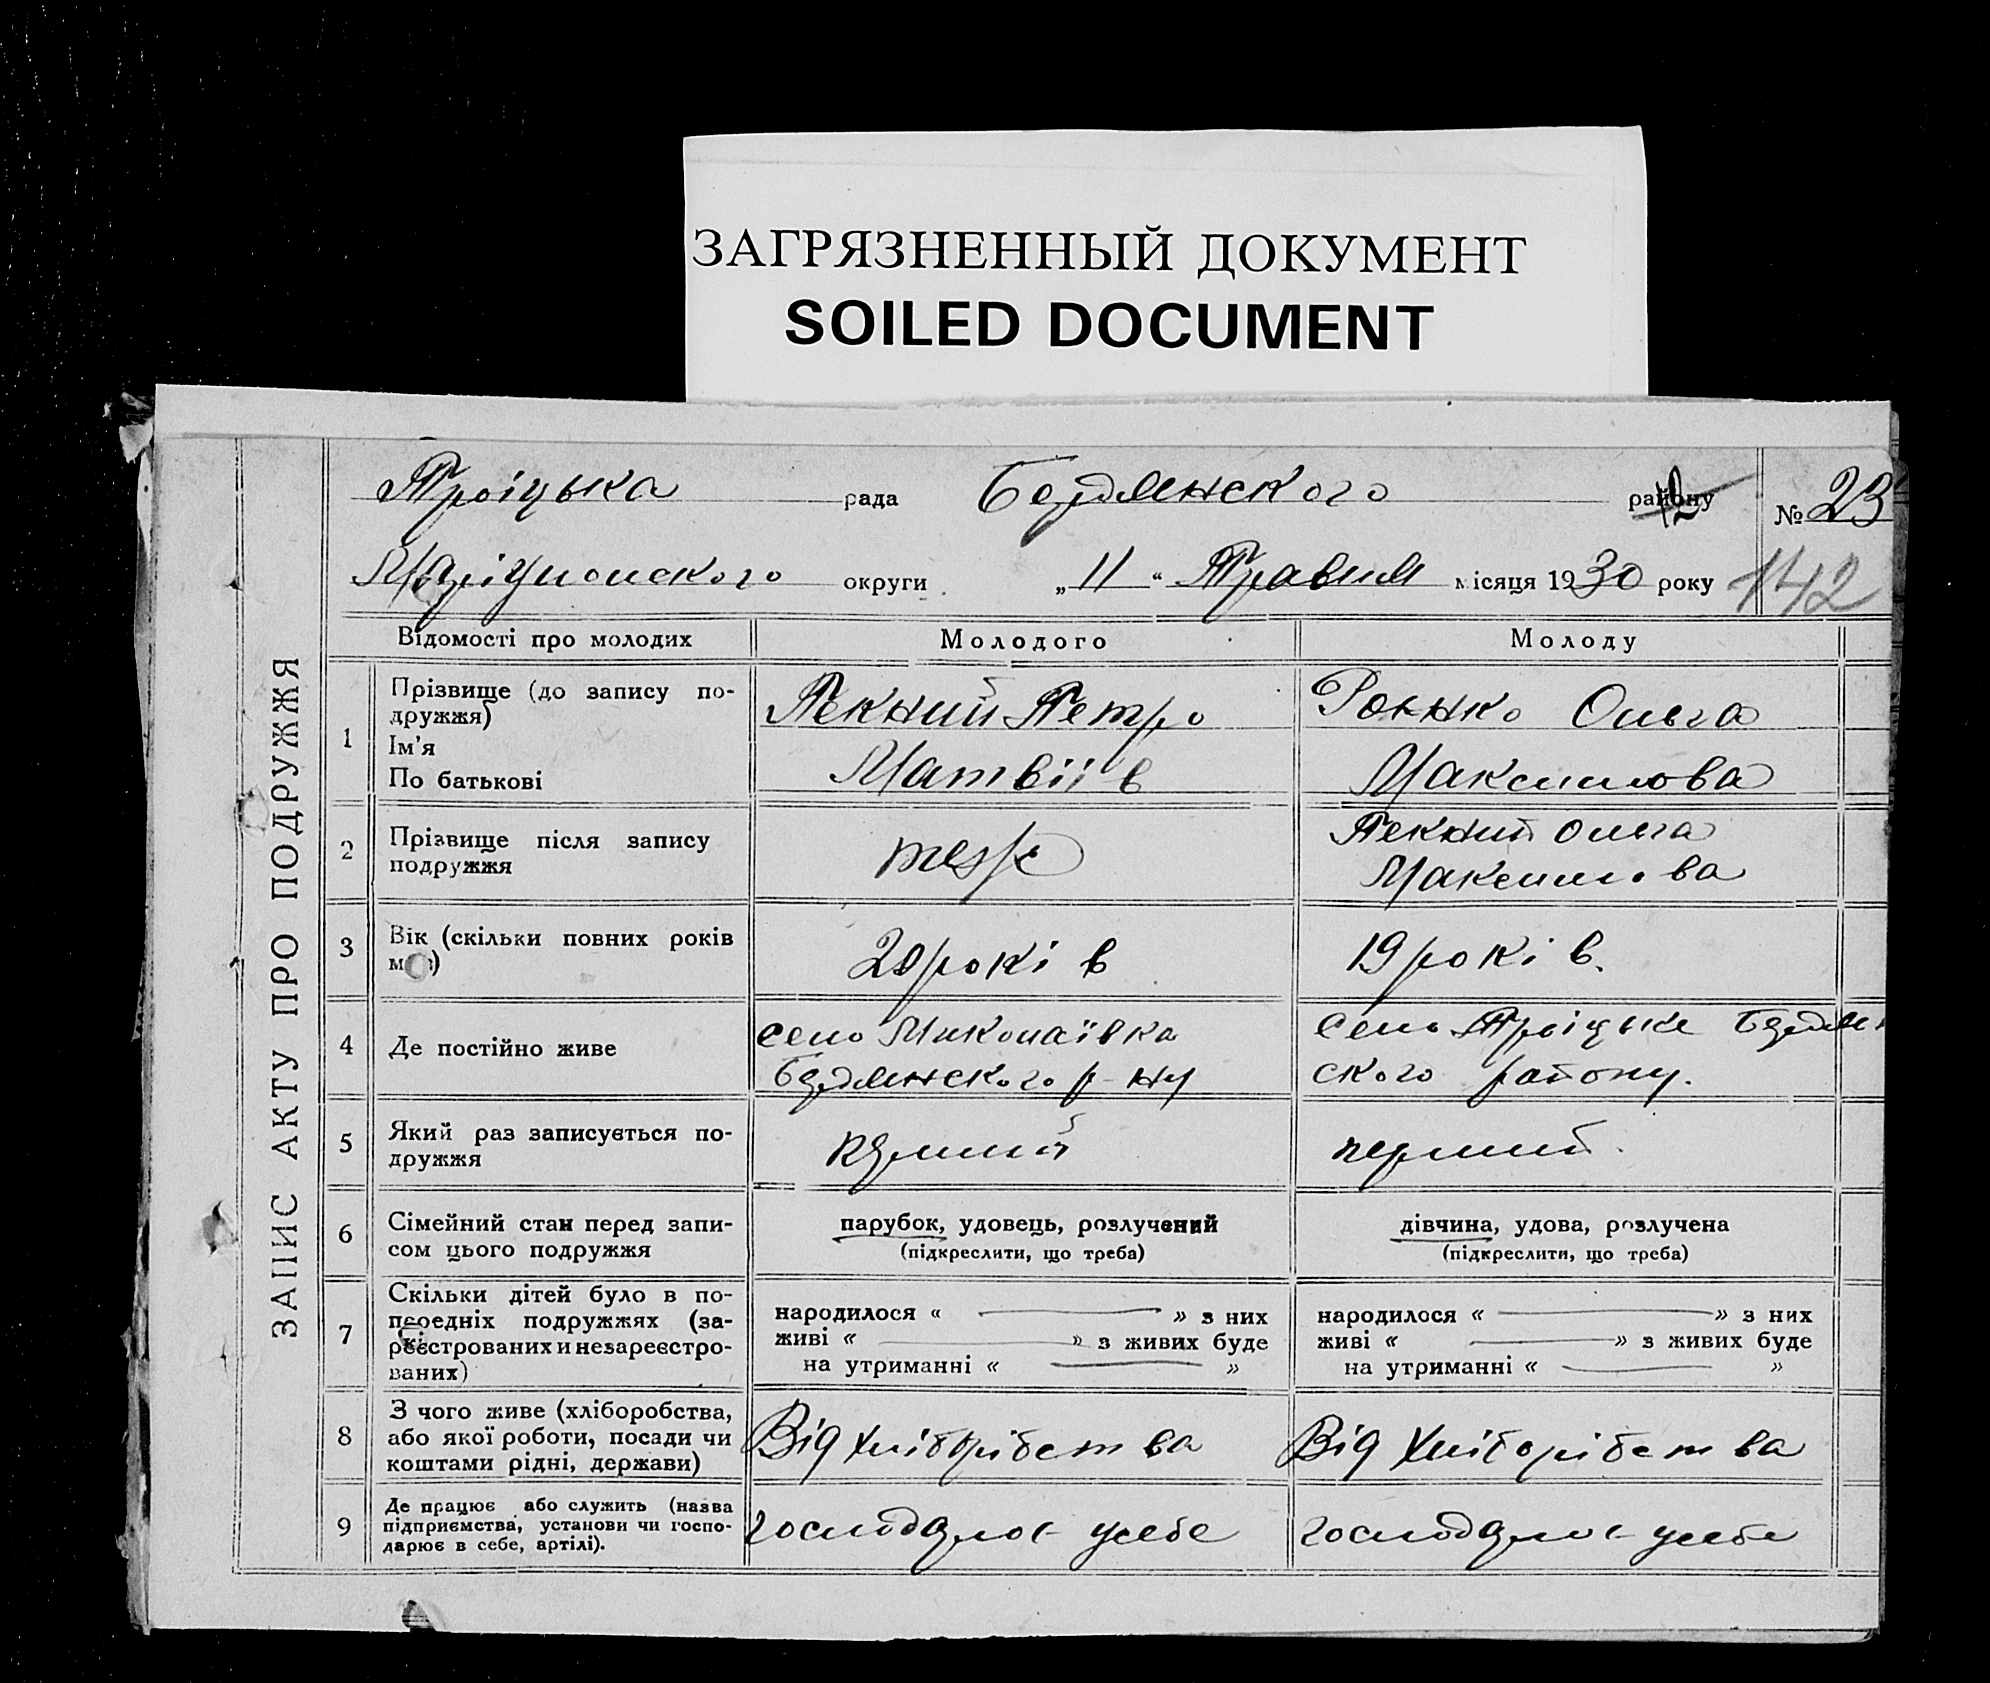 ЗАГРЯЗНЕННЫЙ ДОКУМЕНТ
SOILED DOCUMENT
ЗАПИС АКТУ ПРО ПОДРУЖЖЯ
Троіцька рада Бердянского району № 23
Маріупольского округи „11“ Травня місяця 1930 року 142
Відомості про молодих Молодого Молоду
1 Прізвище (до запису по-
дружжя)
Ім'я
По батькові
Пекний Петро
Матвіїв
Ронжко Ольга
Максимова
2 Прізвище після запису
подружжя
теж
Пекний Ольга
Максимова
3 Вік (скільки повних років
має)
20 років
19 років.
4 Де постійно живе
село Миколаївка
Бердянского р-ну
Село Троіцьке Бердян
ского району.
5 Який раз записується по-
дружжя
перший
перший.
6 Сімейний стан перед запи-
сом цього подружжя
парубок, удовець, розлучений
(підкреслити, що треба)
дівчина, удова, розлучена
(підкреслити, що треба)
7 Скільки дітей було в по-
передніх подружжях (за-
реєстрованих и незареєстро-
ваних)
народилося « » з них
живі « » з живих буде
на утриманні « »
народилося « » з них
живі « » з живих буде
на утриманні « »
8 З чого живе (хліборобства,
або якої роботи, посади чи
коштами рідні, держави)
Від хліборібства
Від хліборібства
9 Де працює або служить (назва
підприємства, установи чи госпо-
дарює в себе, артілі).
господарює усебе
господарює усебе